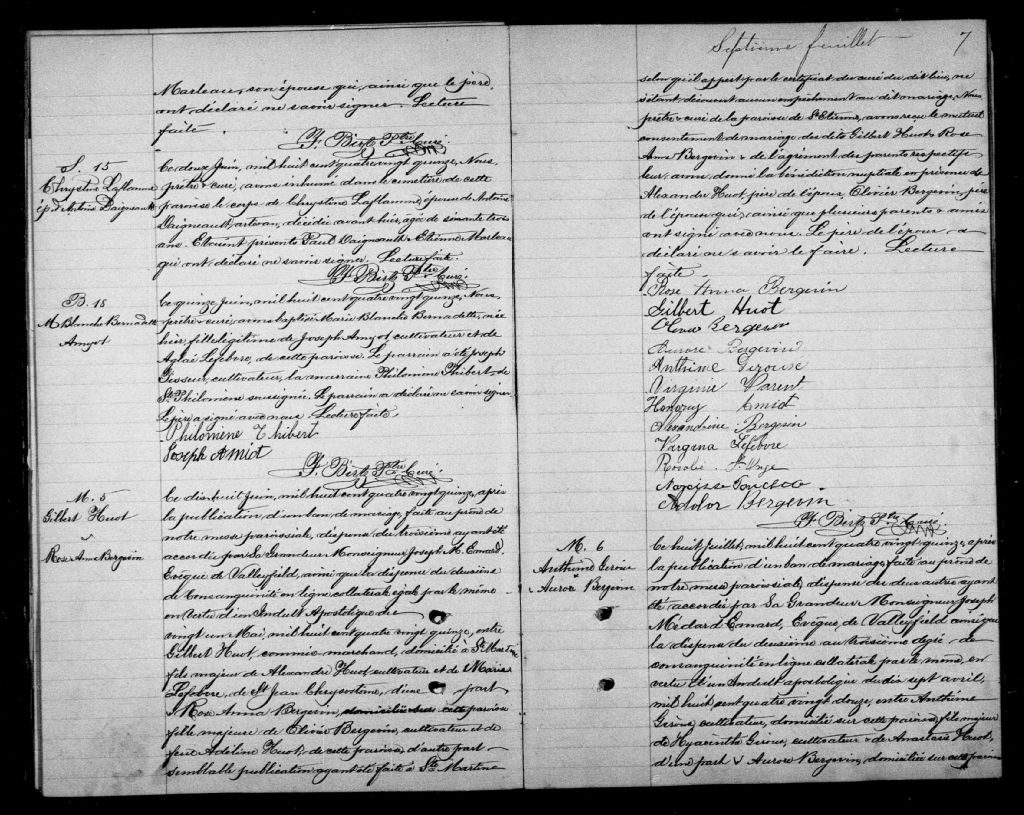 Marleau, son épouse qui, ainsi que le père,
ont déclaré ne savoir signer. Lecture
faite.
Ptre Curé
S. 15
Chrystine Laflamme
ép. d'Antoine Daigneault
Ce deux Juin, mil huit cent quatre vingt quinze, Nous,
prêtre & curé, avons inhumé dans le cimetière de cette
paroisse le corps de Chrystine Laflamme, épouse de Antoine
Daigneault, artisan, décédée avant hier, agée de soixante trois
ans. Etaient présents Paul Daigneault & Etienne Marleau
qui ont déclaré ne savoir signer. Lecture faite.
Ptre Curé
B. 18
M. Blanche Bernadette
Amyot
Ce quinze Juin, mil huit cent quatre vingt quinze, Nous,
prêtre & curé, avons baptisé Marie Blanche Bernadette, née
hier, fille légitime de Joseph Amyot, cultivateur et de
Aglaé Lefebvre, de cette paroisse. Le parrain a été Joseph
cultivateur, la marraine Philomène Thibert de
Ste Philomène soussignée. Le parrain a déclaré ne savoir signer.
Le père a signé avec nous. Lecture faite.
Philomène Thibert
Joseph Amiot
Ptre Curé
M. 5
Gilbert Huot
&
Rose Anna Bergevin
Ce dix huit Juin, mil huit cent quatre vingt quinze, après
la publication d'un ban de mariage, faite au prône de
notre messe paroissiale, dispense du troisième ayant été
accordée par Sa Grandeur Monseigneur Joseph M. Emard,
Evêque de Valleyfield, ainsi que la dispense du deuxième
de Consanguinité en ligne collatérale égale par le même
en vertu d'un Indult Apostolique du
vingt un Mai, mil huit cent quatre vingt quinze, entre
Gilbert Huot, commis marchand, domicilié à Ste Martine
fils majeur de Alexandre Huot cultivateur et de Marie
Lefebvre, de St Jean Chrysostôme, d'une part
& Rose Anna Bergevin, domiciliée sur cette paroisse
fille majeure de Olivier Bergevin, cultivateur et de
feue Adeline Huot, de cette paroisse, d'autre part
semblable publication ayant été faite à Ste Martine
Septième feuillet
7
selon qu'il appert par le certificat du curé du dit lieu, ne
s'étant découvert aucun empêchement au dit mariage, Nous,
prêtre & curé de la paroisse de St Etienne, avons reçu le mutuel
consentement de mariage des dits Gilbert Huot & Rose
Anna Bergevin & de l'agrément des parents respectifs
leur avons donné la bénédiction nuptiale en présence de
Alexandre Huot, père de l'époux, Olivier Bergevin, père
de l'épouse qui, ainsi que plusieurs parents & amis
ont signé avec nous. Le père de l'époux a
déclaré ne savoir le faire. Lecture
faite.
Rose Anna Bergevin
Gilbert Huot
Bergevin
Aurore Bergevin
Anthime Giroux
Virginie Parent
Amiot
Alexandrine Bergevin
Virginia Lefebvre
Rosalie St Onge
Narcisse
Bergevin
Ptre Curé
M. 6
Anthime Giroux
&
Aurore Bergevin
Ce huit Juillet, mil huit cent quatre vingt quinze, après
la publication d'un ban de mariage, faite au prône de
notre messe paroissiale, dispense des deux autres ayant
été accordée par Sa Grandeur Monseigneur Joseph
Médard Emard, Evêque de Valleyfield ainsi que
la dispense du deuxième au troisième degré de
consanguinité en ligne collatérale par le même, en
vertu d'un Indult apostolique du dix sept avril,
mil huit cent quatre vingt douze, entre Anthime
Giroux, cultivateur, domicilié sur cette paroisse, fils majeur
de Hyacinthe Giroux, cultivateur & de Anastasie Huot,
d'une part & Aurore Bergevin, domiciliée sur cette paroisse